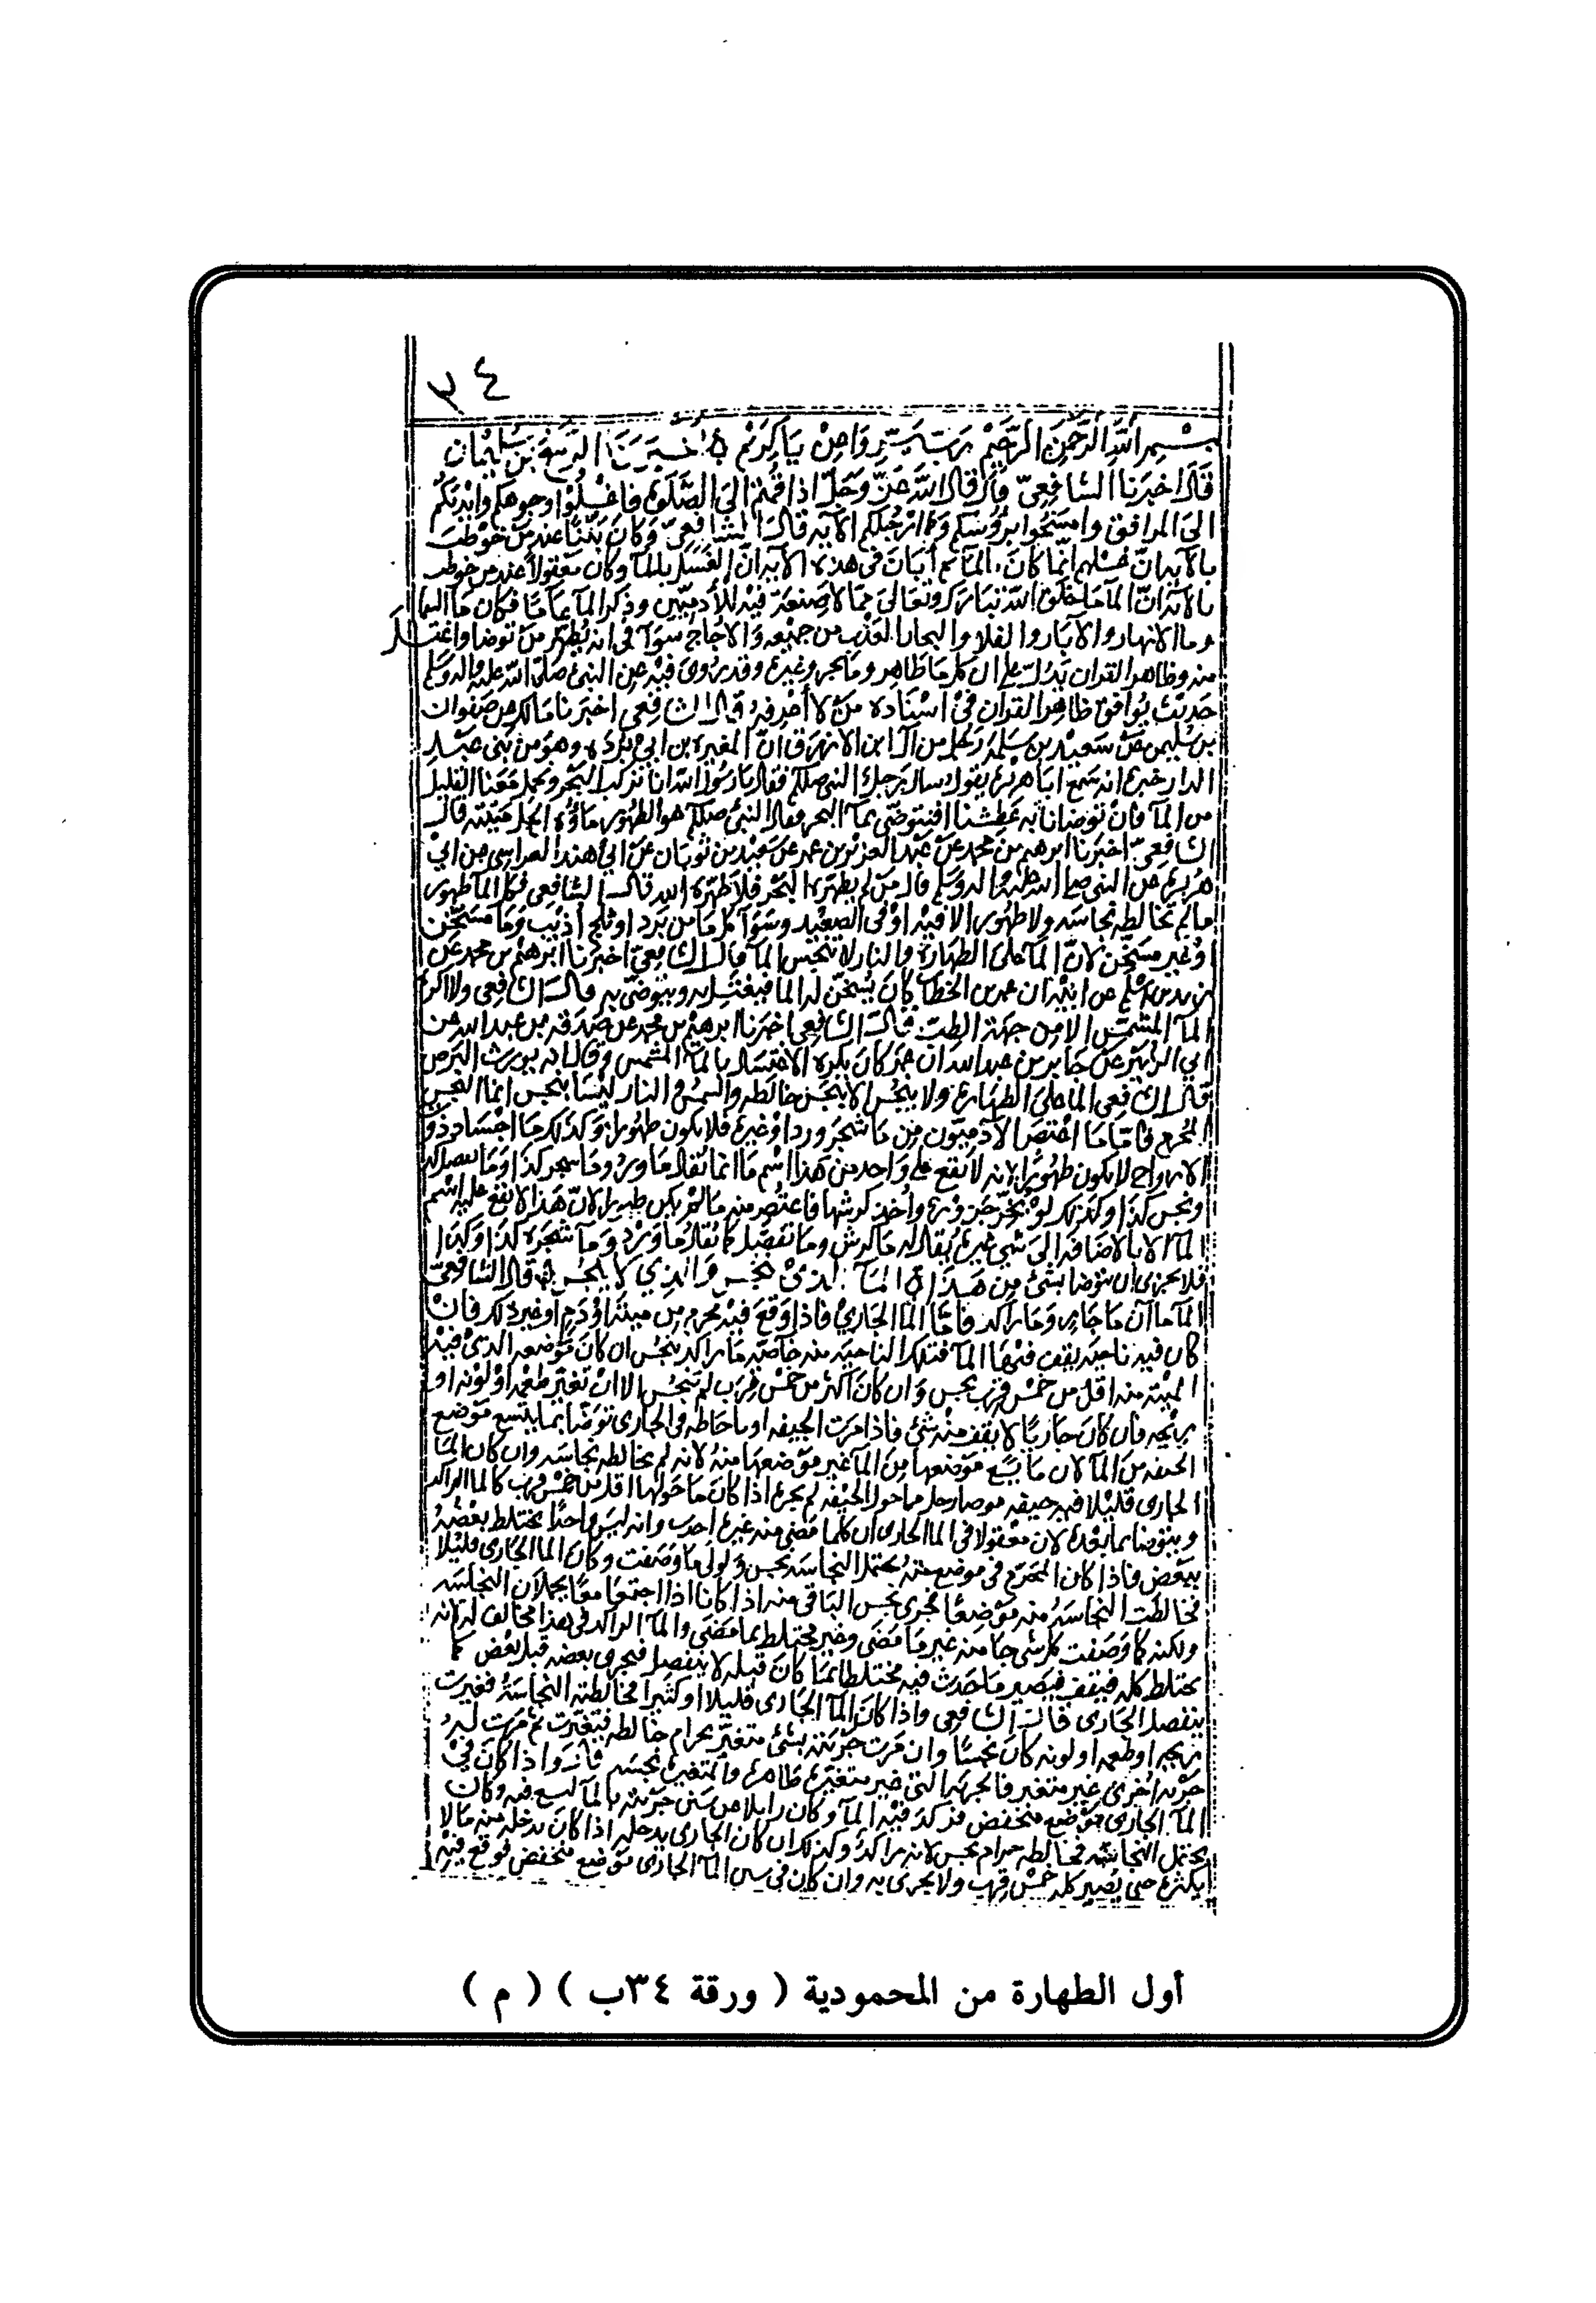 ٣٤
بسم الله الرحمن الرحيم رب يسر واعن يا كريم اخبرنا الربيع بن سليمان
قال اخبرنا الشافعي قال قال الله عز وجل اذا قمتم الى الصلوة فاغسلوا وجوهكم وايديكم
الى المرافق وامسحوا برؤسكم وارجلكم الاية قال الشافعي وكان بينا عند من خوطب
بالاية ان غسلهم انما كان بالمآ ثم ابان في هذه الاية ان الغسل بالمآ وكان معقولا عند من خوطب
بالاية ان المآ ما خلق الله تبارك وتعالى مما لا صنعة فيه للآدميين وذكر المآ عاما فكان مآ السما
وما الانهار والآبار والقلات والبحار العذب من جميعه والاجاج سوآ في انه يطهر من توضا واغتسل
منه وظاهر القران يدل على ان كل ما طاهر وما بحر وغيره وقد روى فيه عن النبي صلى الله عليه واله وسلم
حديث يوافق ظاهر القران في اسناده من لا أعرفه قال الشافعي اخبرنا مالك عن صفوان
بن سليم عن سعيد بن سلمة رجل من آل ابن الازرق ان المغيرة بن ابي بردة وهو من بني عبد
الدار خبره انه سمع ابا هريرة يقول سال رجل النبي صلعم فقال يا رسول الله انا نركب البحر ونحمل معنا القليل
من المآ فان توضانا به عطشنا افنتوضى بمآ البحر فقال النبي صلعم هو الطهور ماؤه الحل ميتته قال
الشافعي اخبرنا ابرهيم بن محمد عن عبد العزيز بن عمر عن سعيد بن ثوبان عن ابي هند الفراسي عن ابي
هريرة عن النبي صلى الله عليه واله وسلم قال من لم يطهره البحر فلا طهره الله قال الشافعي فكل المآ طهور
ما لم تخالطه نجاسة ولا طهور الا فيه او في الصعيد وسوآ كل ما من برد او ثلج أذيب وما مسخن
او غير مسخن لان المآ على الطهارة والنار لا تنجس المآ قال الشافعي اخبرنا ابرهيم بن محمد عن
زيد بن اسلم عن ابيه ان عمر بن الخطاب كان يسخن له الما فيغتسل به ويتوضى به قال الشافعي ولا اكره
المآ المشمس الا من جهة الطب قال الشافعي اخبرنا ابرهيم بن محمد عن صدقة بن عبد الله عن
ابي الزبير عن جابر بن عبد الله ان عمر كان يكره الاغتسال بالمآ المشمس وقال انه يورث البرص
قال الشافعي الما على الطهارة ولا ينجس الا بنجس خالطه والشمس والنار ليسا بنجس انما النجس
المحرم فاما ما اعتصر الآدميون من ما شجر ورد او غيره فلا يكون طهورا وكذلك ما اجساد ذو
الارواح لا يكون طهورا لانه لا يقع على واحد من هذا اسم ما انما يقال ما ورد وما شجر كذا وما مفصل كذا
وكذلك لو نحر جزورا واخذ كرشها فاعتصر منه مالم يكن طهورا لان هذا لا يقع عليه اسم
المآ الا بالاضافة الى شي غيره يقال له ما كرش وما مفصل كما يقال ما ورد وما شجرة كذا وكذا
فلا يجزى ان يتوضا بشئ من هذا المآ الذي ينجس والذي لا ينجس قال الشافعي
المآ ماآن ما جار وما راكد فاما الما الجاري فاذا وقع فيه محرم من ميتة او دم او غير ذلك فان
كان فيه ناحية يقف فيها المآ فتلك الناحية منه خاصة ما راكد ينجس ان كان موضعه الذي فيه
الميتة منه اقل من خمس قرب نجس وان كان اكثر من خمس قرب لم ينجس الا ان تغير طعمه او لونه او
ريحه فان كان جاريا لا يقف منه شئ فاذا مرت الجيفة او ما خالطه في الجاري توضا بما يتبع موضع
الجيفة من المآ لان ما يتبع موضعها من المآ غير موضعها منه لانه لم يخالطه نجاسة وان كان الما
الجارى قليلا فيه جيفة فتوضا رجل مما حول الجيفة لم يجزه اذا كان ما حولها اقل من خمس قرب كالما الراكد
ويتوضا بما بعده لان معقولا في الما الجارى ان كلما مضى منه غير ما حدث وانه ليس واحدا يختلط بعضه
ببعض فاذا كان المحرم في موضع منه يحتمل النجاسة نجس ولولا ما وصفت وكان الما الجارى قليلا
فخالطت النجاسة منه موضعا فجرى نجس الباقي منه اذا كانا اذا اجتمعا معا يحملان النجاسة
ولكنه كما وصفت كل شي جا منه غير ما مضى وغير مختلط بما مضى والمآ الراكد في هذا مخالف له لانه
يختلط كله فيقف فيصير ما حدث فيه مختلطا بما كان قبله لا ينفصل فيجري بعضه قبل بعض كما
ينفصل الجارى قال الشافعي واذا كان المآ الجارى قليلا او كثيرا فخالطته النجاسة فغيرت
ريحه او طعمه او لونه كان نجسا وان مرت جريته بشئ متغير بحرام خالطه فتغيرت ثم مرت به
جرية اخرى غير متغير فالجرية التي غير متغيرة طاهرة والمتغيرة نجسة قال واذا كان في
المآ الجارى موضع منخفض فركد فيه المآ وكان زايلا عن سنن جريته بالمآ يستنقع فيه وكان
يحتمل النجاسة فخالطه حرام نجس لانه راكد وكذلك ان كان الجارى يدخله اذا كان يدخله منه مالا
يكثره حتى يصير كله خمس قرب ولا يجرى به وان كان في سنن المآ الجارى موضع منخفض فوقع فيه
أول الطهارة من المحمودية ( ورقة ٣٤ب ) ( م )